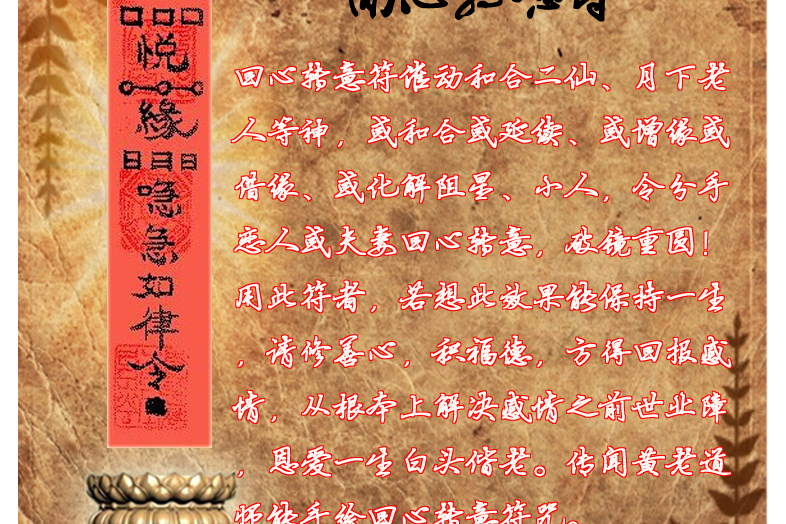 回心转意符
悦
缘
唸急如律令
回心转意符催动和合二仙、月下老
人等神，或和合或延续、或增缘或
借缘、或化解阻星、小人，令分手
恋人或夫妻回心转意，破镜重圆！
用此符者，若想此效果能保持一生
，请修善心，积福德，方得回报感
情，从根本上解决感情之前世业障
，恩爱一生白头偕老。传闻黄老道
师能手绘回心转意符咒。